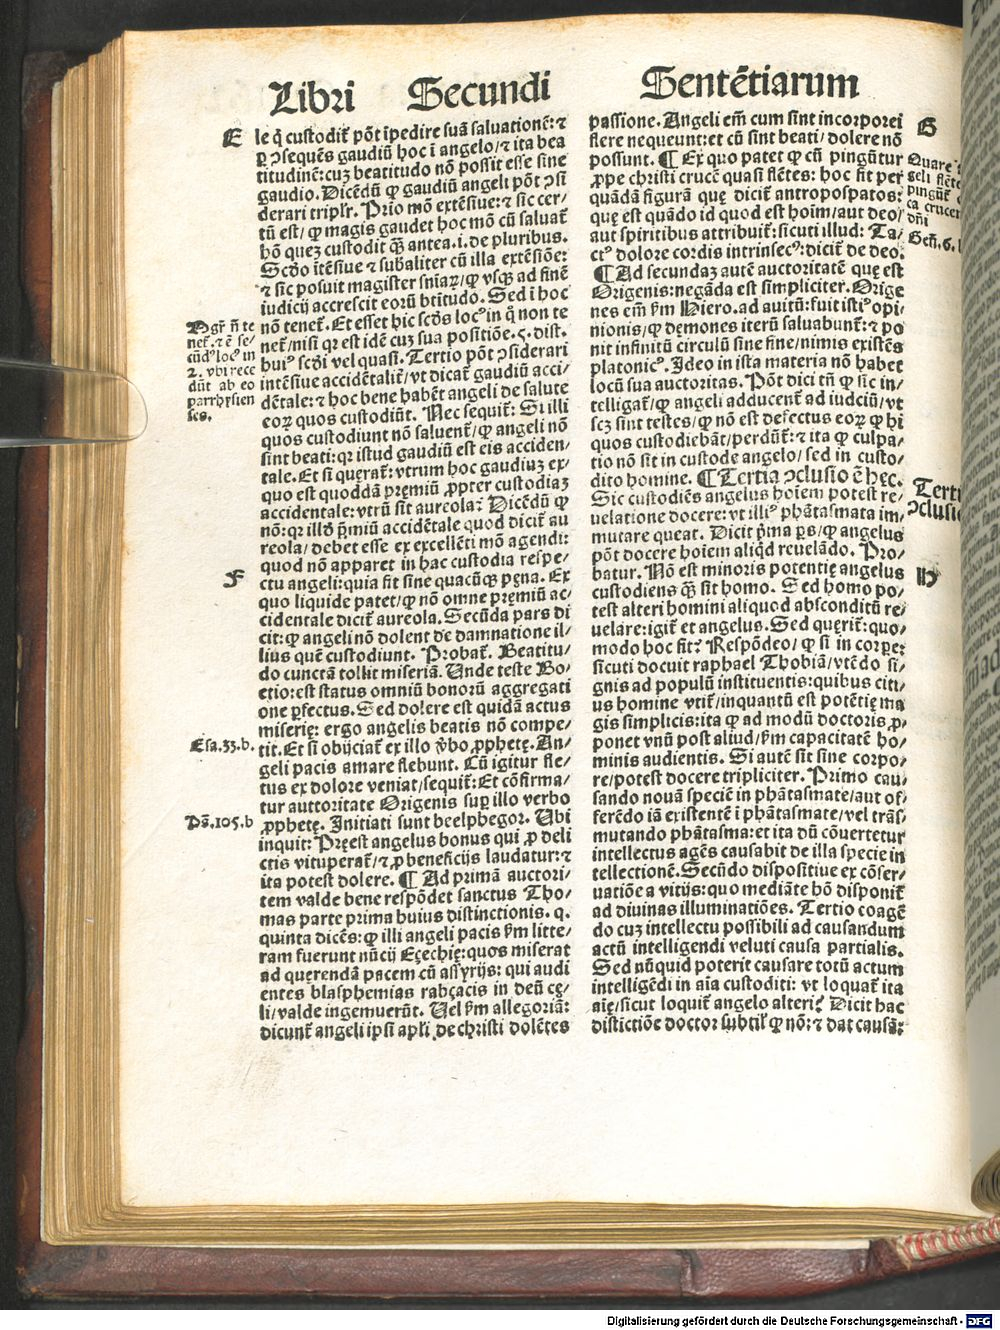 Libri Secundi Sentẽtiarum
E
le q̃ custodit̃ põt ĩpedire suã saluationẽ: ⁊
ꝑ ↄsequẽs gaudiũ hoc ĩ angelo/ ⁊ ita bea
titudinẽ: cuz beatitudo nõ possit esse sine
gaudio. Dicẽdũ ꝙ gaudiũ angeli põt ↄsi
derari tripl'r. Prio mõ extẽsiue: ⁊ sic cer/
tũ est/ ꝙ magis gaudet hoc mõ cũ saluat̃
hõ quez custodit q̃ꝫ antea .i. de pluribus.
Scd̃o ĩtẽsiue ⁊ sub̃aliter cũ illa extẽsiõe:
⁊ sic posuit magister sniaꝝ/ ꝙ vsqꝫ ad finẽ
iudicij accrescit eorũ btitudo. Sed ĩ hoc
nõ tenet̃. Et esset hic scd̃s locꝰ in q̃ non te
net̃/ nisi qꝛ est idẽ cuz sua positiõe .5. dist.
huiꝰ scd̃i vel quasi. Tertio põt ↄsiderari
intẽsiue accidẽtalit̃/ vt dicat̃ gaudiũ acci/
dẽtale: ⁊ hoc bene habẽt angeli de salute
eoꝝ quos custodiũt. Nec sequit̃: Si illi
quos custodiunt nõ saluent̃/ ꝙ angeli nõ
sint beati: qꝛ istud gaudiũ est eis acciden/
tale. Et si querat̃: vtrum hoc gaudiuz ex/
quo est quoddã pręmiũ ꝓpter custodiaz
accidentale: vtrũ sit aureola? Dicẽdũ ꝙ
nõ: qꝛ illd̃ p̃miũ accidẽtale quod dicit̃ au
reola/ debet esse ex excellẽti mõ agendi:
quod nõ apparet in hac custodia respe/
F
ctu angeli: quia fit sine quacũqꝫ pęna. Ex
quo liquide patet/ ꝙ nõ omne pręmiũ ac/
cidentale dicit̃ aureola. Secũda pars di
cit: ꝙ angeli nõ dolent de damnatione il/
lius quẽ custodiunt. Probat̃. Beatitu/
do cunctam tollit miseriã. Unde teste Bo/
etio: est status omniũ bonorũ aggregati
one ꝑfectus. Sed dolere est quidã actus
miserię: ergo angelis beatis nõ compe/
tit. Et si obijciat̃ ex illo v̾bo ꝓphetę. An/
geli pacis amare flebunt. Cũ igitur fle/
tus ex dolore veniat/ sequit̃: Et cõfirma/
tur auttoritate Origenis suꝑ illo verbo
ꝓphetę. Initiati sunt beelphegor. Ubi
inquit: Pręest angelus bonus qui ꝓ deli
ctis vituperat̃/ ⁊ ꝓ beneficijs laudatur: ⁊
ita potest dolere. ¶ Ad primã auctori/
tem valde bene respõdet sanctus Tho/
mas parte prima huius distinctionis. q.
quinta dicẽs: ꝙ illi angeli pacis ẜm litte/
ram fuerunt nũcij Ezechię: quos miserat
ad querendã pacem cũ assyrijs: qui audi
entes blasphemias rabsacis in deũ cę/
li/ valde ingemuerũt. Uel ẜm allegoriã:
dicunt̃ angeli ipsi apl'i de christi dolẽtes
Mg̃r ñ te
net̃. ⁊ ẽ se/
cũdꝰ locꝰ in
2. vbi rece
dũt ab eo
parrhysien
ses.
Esa.33.b.
Ps̃.105.b
passione. Angeli em̃ cum sint incorporei
flere nequeunt: et cũ sint beati/ dolere nõ
possunt. ¶ Ex quo patet ꝙ cũ pingũtur
ꝓpe christi crucẽ quasi flẽtes: hoc fit per
quãdã figurã quę dicit̃ antropospatos:
quę est quãdo id quod est hoim̃/ aut deo/
aut spiritibus attribuit̃: sicuti illud: Ta/
ctꝰ dolore cordis intrinsecꝰ: dicit̃ de deo.
¶ Ad secundaz autẽ auctoritatẽ quę est
Origenis: negãda est simpliciter. Orige
nes em̃ ẜm Hiero. ad auitũ: fuit istiꝰ opi/
nionis/ ꝙ dęmones iterũ saluabunt̃: ⁊ po
nit infinitũ circulũ sine fine/ nimis existẽs
platonicꝰ. Ideo in ista materia nõ habet
locũ sua auctoritas. Põt dici tñ ꝙ sic in/
telligat̃/ ꝙ angeli adducent̃ ad iudciũ/ vt
scz sint testes/ ꝙ nõ est defectus eoꝝ ꝙ hi
quos custodiebãt/ perdũt̃: ⁊ ita ꝙ culpa/
tio nõ sit in custode angelo/ sed in custo/
dito homine. ¶ Tertia ↄclusio ẽ hęc.
Sic custodiẽs angelus hoiem potest re/
uelatione docere: vt illiꝰ phãtasmata im/
mutare queat. Dicit p̃ma ꝑs/ ꝙ angelus
põt docere hoiem aliq̃d reuelãdo. Pro/
batur. Nõ est minoris potentię angelus
custodiens q̃ꝫ sit homo. Sed homo po/
test alteri homini aliquod absconditũ re/
uelare: igit̃ et angelus. Sed querit̃: quo/
modo hoc fit? Respõdeo/ ꝙ si in corpe:
sicuti docuit raphael Thobiã/ vtẽdo si/
gnis ad populũ instituentis: quibus citi/
us homine vtit̃/ inquantũ est potẽtię ma
gis simplicis: ita ꝙ ad modũ doctoris ꝓ/
ponet vnũ post aliud/ ẜm capacitatẽ ho/
minis audientis. Si autẽ sit sine corpo/
re/ potest docere tripliciter. Primo cau/
sando nouã speciẽ in phãtasmate/ aut of/
ferẽdo iã existentẽ ĩ phãtasmate/ vel trãs/
mutando phãtasma: et ita dũ cõuertetur
intellectus agẽs causabit de illa specie in
tellectionẽ. Secũdo dispositiue ex cõser/
uatiõe a vitijs: quo mediãte hõ disponit̃
ad diuinas illuminatiões. Tertio coagẽ
do cuz intellectu possibili ad causandum
actũ intelligendi veluti causa partialis.
Sed nũquid poterit causare totũ actum
intelligẽdi in aĩa custoditi: vt loquat̃ ita
aĩę/ sicut loquit̃ angelo alteri? Dicit hac
distictiõe doctor subtil' ꝙ nõ: ⁊ dat causã:
G
Quare
geli flẽt
pingũt̃
ca crucem
dñi
Geñ.6.
Terti
ↄclusi
H
Digitalisierung gefördert durch die Deutsche Forschungsgemeinschaft - DFG